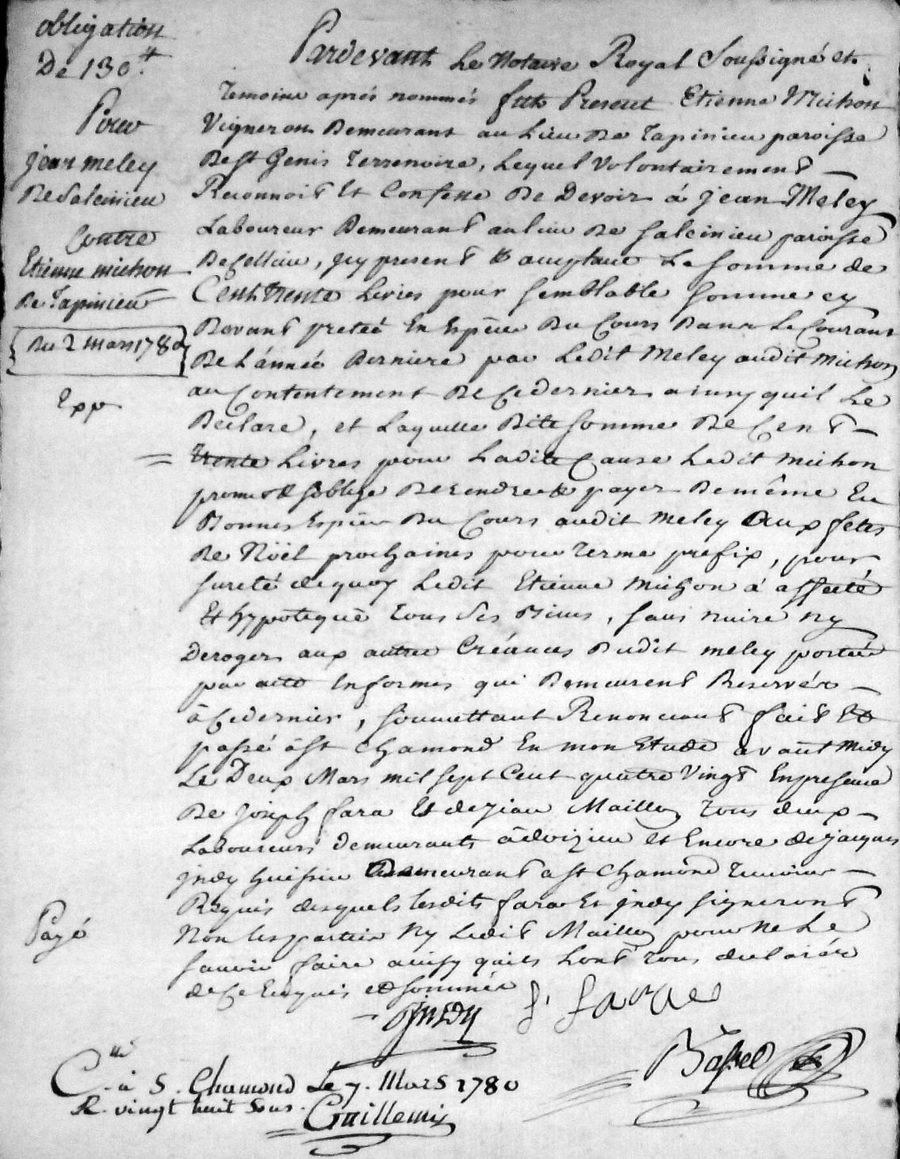 obligation
De 130.ᵗᵗ
Pour
jean meley
De Salcinieu
Contre
Etienne michon
De Tapinieu
Du 2 mars 1780
Exp
Payé
Pardevant Le Notaire Royal Soussigné et
Temoins aprés nommés fut Present Etienne Michon
Vigneron Demeurant au Lieu De Tapinieu paroisse
De St Genis Terrenoire, Lequel Volontairement
Reconnoit Et Confesse De Devoir á Jean Meley
Laboureur Demeurant au lieu De Salcinieu paroisse
De Cellieu, jcy present & acceptant La Somme de
Cent trente Livres pour Semblable Somme cy
Devant pretée En Espèce Du Cours Dans Le Courant
De L'année Derniere par Ledit Meley audit Michon
au Contentement De Ce dernier ainsy quil Le
Declare, et Laquelle Dite Somme De Cent
trente Livres pour Ladite Cause Ledit Michon
promet & soblige De rendre & payer De même En
Bonnes Espèces Du Cours audit Meley Aux fetes
De Nöel prochaines pour Terme prefix, pour
sureté de quoy Ledit Etienne Michon á affecté
Et hypotequé Tous Ses Biens, sans nuire ny
Deroger aux autres Créances Dudit meley portées
par acte Informes qui Demeurent Reservées
à Ce dernier, soumettant Renonceant fait Et
passé à St Chamond En mon Etude avant Midy
Le Deux Mars mil sept Cent quatre Vingt En presence
De Joseph fara Et de jean Mailley Tous deux
Laboureurs demeurants à doizieu et Encore de jacques
jndy huissier Demeurant a St Chamond Temoins
Requis desquels Lesdits fara Et jndy signeront
Non Les parties Ny Ledit Mailley pour Ne Le
savoir faire ainsy quils Lont Tous declarés
de Ce Enquis et sommés
jndy J. fara
Bassel
C.ˡˡᵉ à S. Chamond Le 7. Mars 1780
R. vingt huit sous.
Guillemin